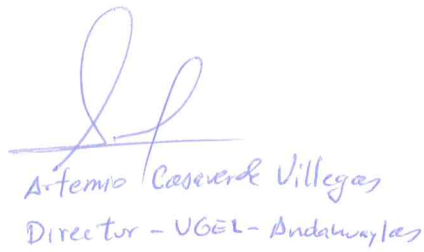 Artemio Casaverde Villegas
Director - UGEL - Andahuaylas